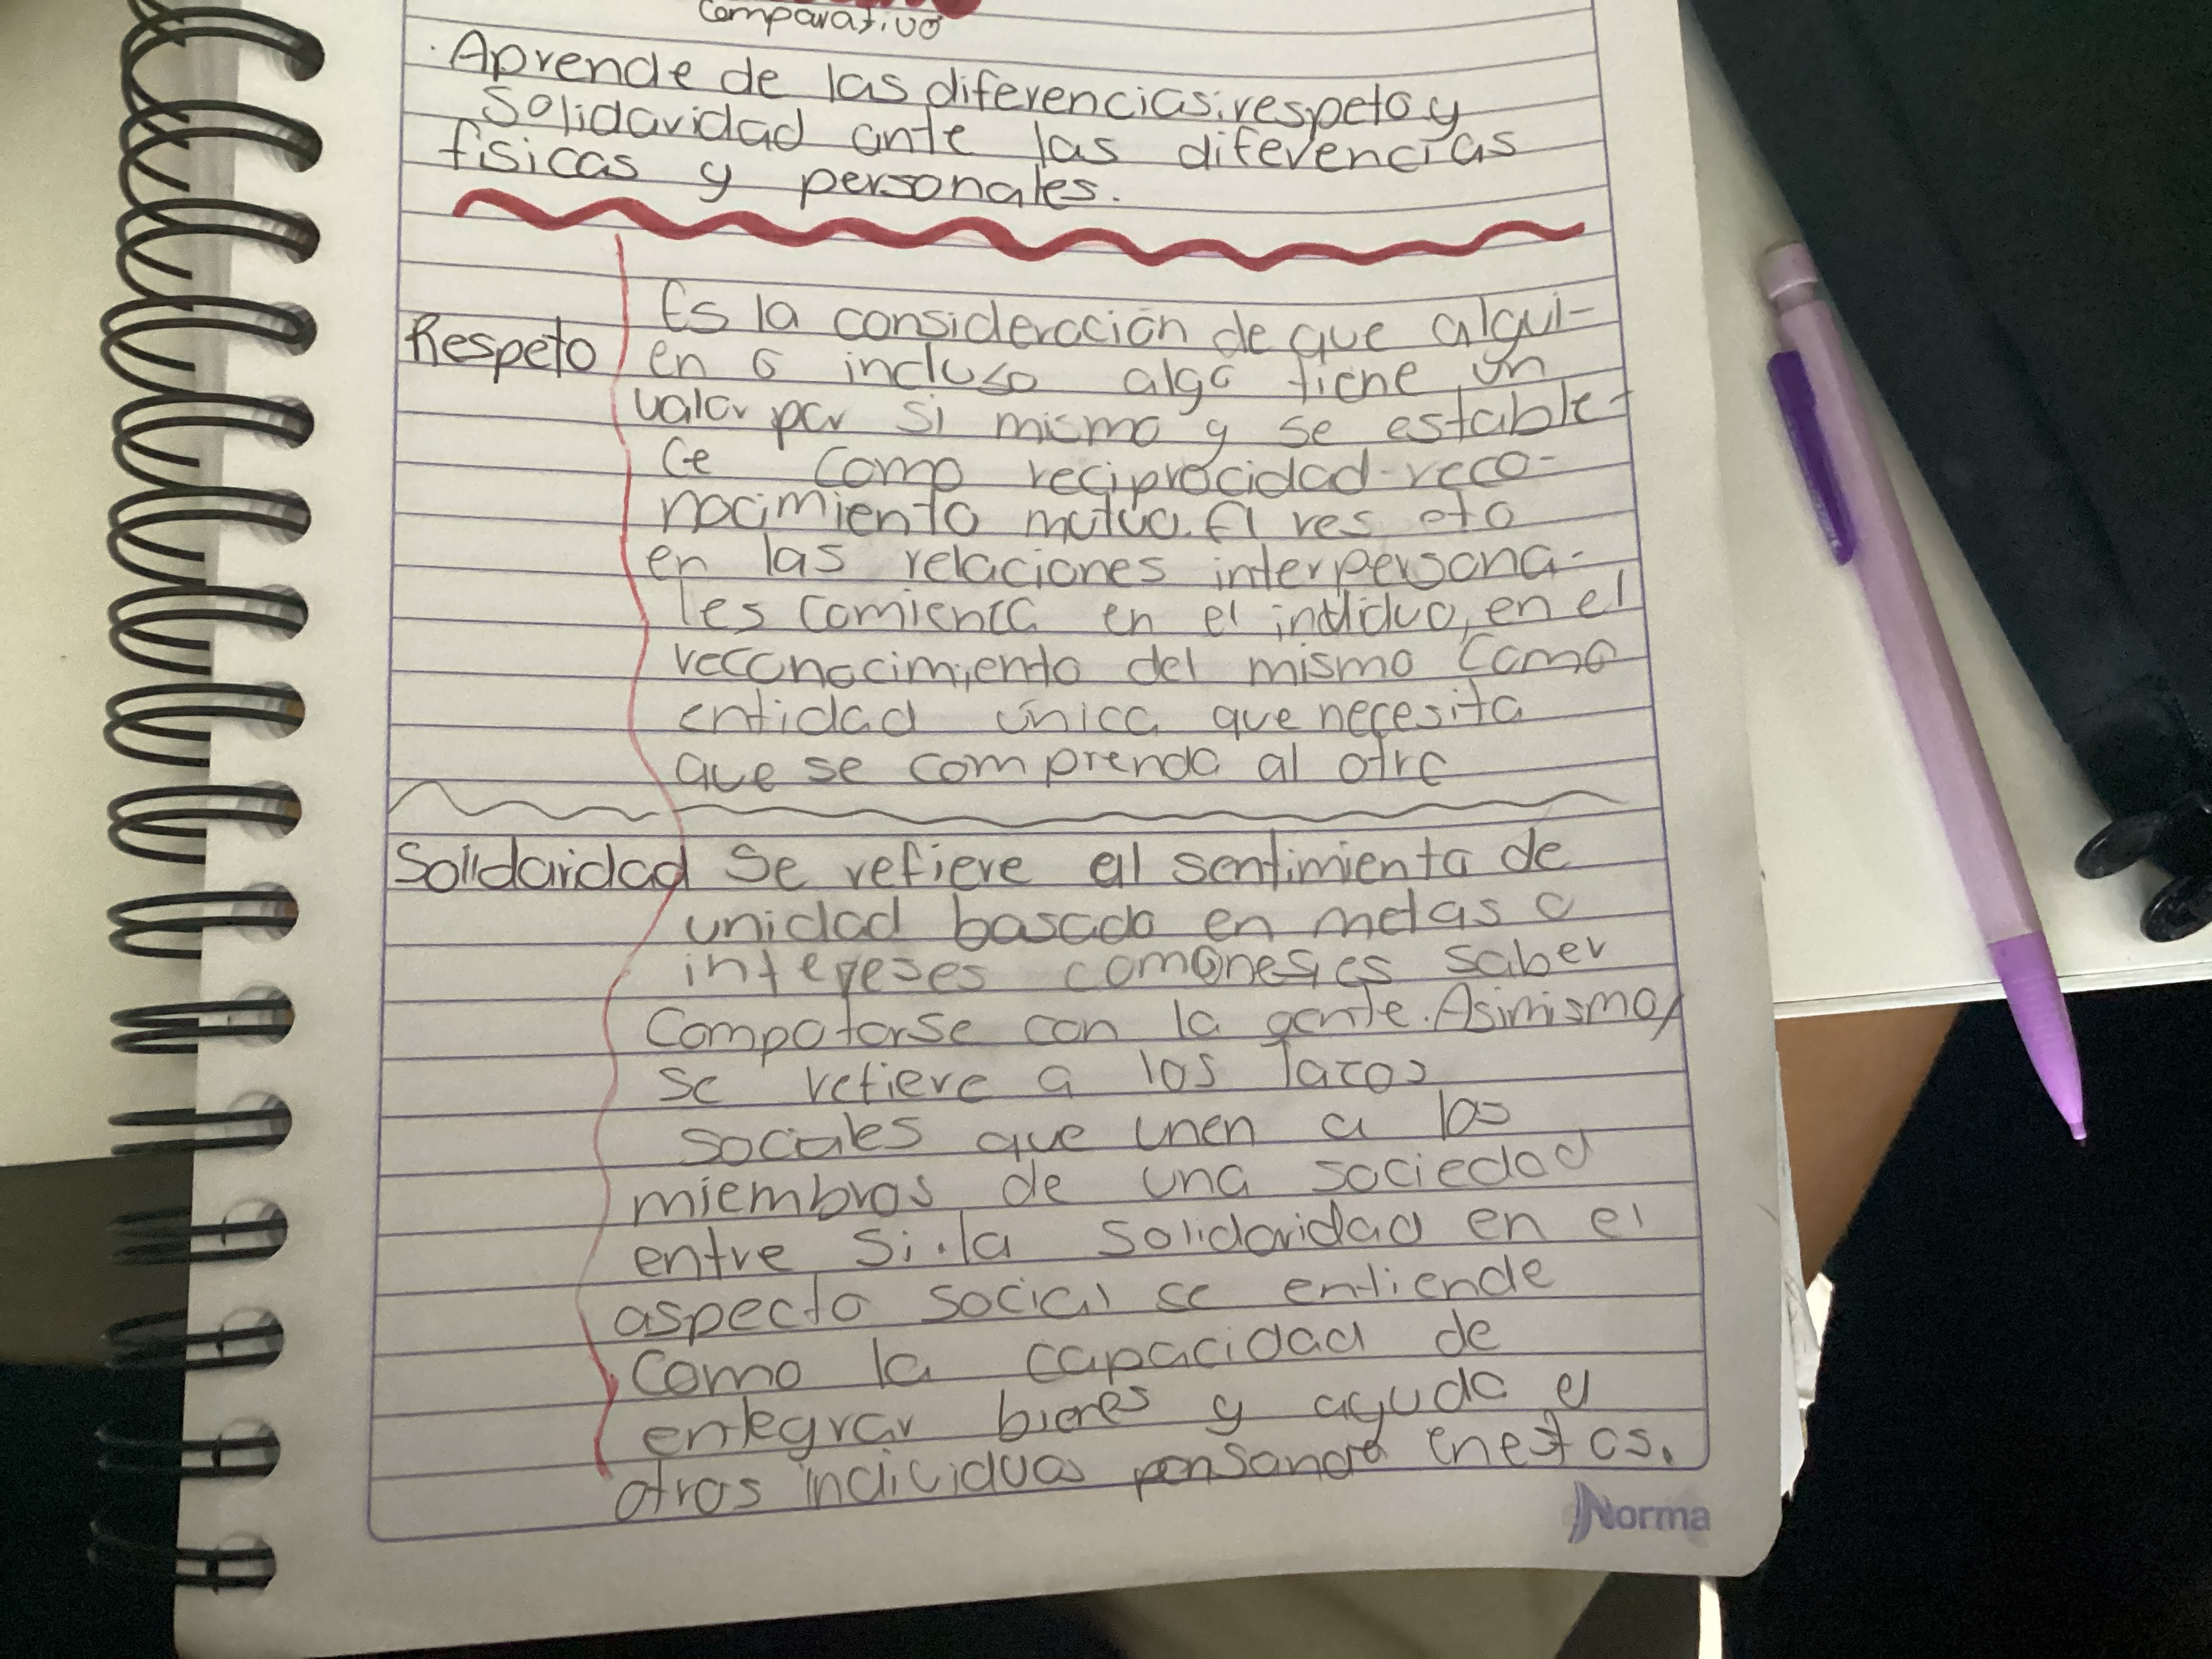 Comparativo
. Aprende de las diferencias: respeto y
Solidaridad ante las diferencias
físicas y personales.
Respeto
Es la consideración de que algui-
en o incluso algo tiene un
valor por si mismo y se estable-
ce como reciprocidad-reco-
nocimiento mutuo. El res eto
en las relaciones interpersona-
les comienca en el indididuo, en el
reconocimiento del mismo como
entidad única que necesita
que se comprenda al otro
Solidaridad
Se refiere al sentimiento de
unidad basado en metas o
intereses comones, es saber
Compotarse con la gente. Asimismo,
se refiere a los lazos
sociales que unen a los
miembros de una sociedad
entre si. la Solidaridad en el
aspecto social se entiende
como la capacidad de
entegrar bienes y ayuda a
otros individuos pensando en estos.
Norma